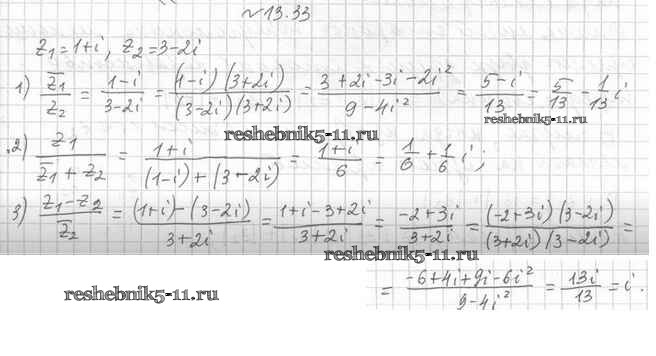 №13.33
z₁=1+i, z₂=3-2i
1) z̅₁/z₂ = (1-i)/(3-2i) = ((1-i)(3+2i))/((3-2i)(3+2i)) = (3+2i-3i-2i²)/(9-4i²) = (5-i)/13 = 5/13 - 1/13 i
reshebnik5-11.ru
reshebnik5-11.ru
2) z₁/(z̅₁+z₂) = (1+i)/((1-i)+(3-2i)) = (1+i)/6 = 1/6 + 1/6 i;
3) (z₁-z₂)/z̅₂ = ((1+i)-(3-2i))/(3+2i) = (1+i-3+2i)/(3+2i) = (-2+3i)/(3+2i) = ((-2+3i)(3-2i))/((3+2i)(3-2i)) =
reshebnik5-11.ru
= (-6+4i+9i-6i²)/(9-4i²) = 13i/13 = i.
reshebnik5-11.ru